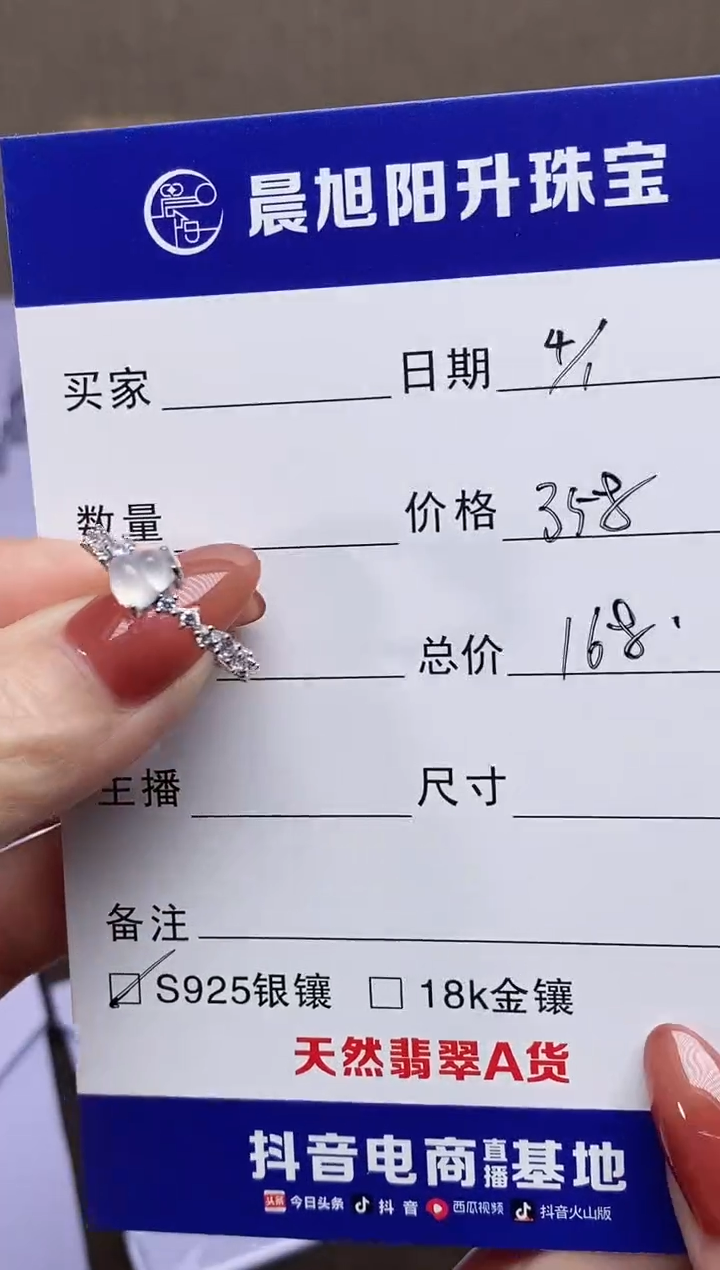 晨旭阳升珠宝
买家 日期 4/1
数量 价格 358
总价 168.
主播 尺寸
备注
S925银镶 18k金镶
天然翡翠A货
抖音电商直播基地
头条 今日头条 抖音 西瓜视频 抖音火山版